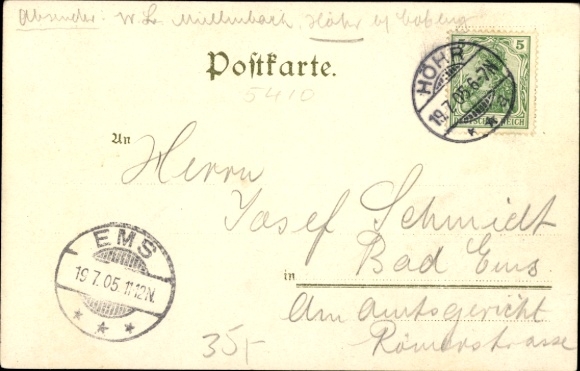 Absender: W. L. Müllenbach, Höhr b/ Cobleng
Postkarte.
5
HÖHR
19.7.05.6-7N.
REICH
5410
An
Herrn
Josef Schmidt
in
Bad Ems.
EMS
19.7.05.11-12N.
Am Amtsgericht
Römerstrasse
35,-